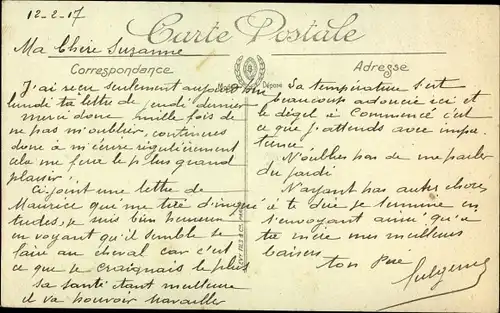 12-2-17
Carte Postale
Ma Chère Suzanne
Correspondance
Adresse
J'ai reçu seulement aujourd'hui
lundi ta lettre de jeudi dernier
merci donc mille fois de
ne pas m'oublier, continues
donc à m'écrire régulièrement
cela me fera le plus grand
plaisir.
Ci joint une lettre de
Maurice qui me tire d'inquié
tudes, je suis bien heureux
en voyant qu'il semble se
faire au cheval car c'est
ce que je craignais le plus
sa santé étant meilleure
il va pouvoir travailler
La température s'est
beaucoup adoucie ici et
le dégel a commencé c'est
ce que j'attends avec impa
tience
N'oublies pas de me parler
du jardi
N'ayant pas autre chose
à te dire je termine en
t'envoyant ainsi qu'à
ta mère mes meilleurs
baisers
ton Père